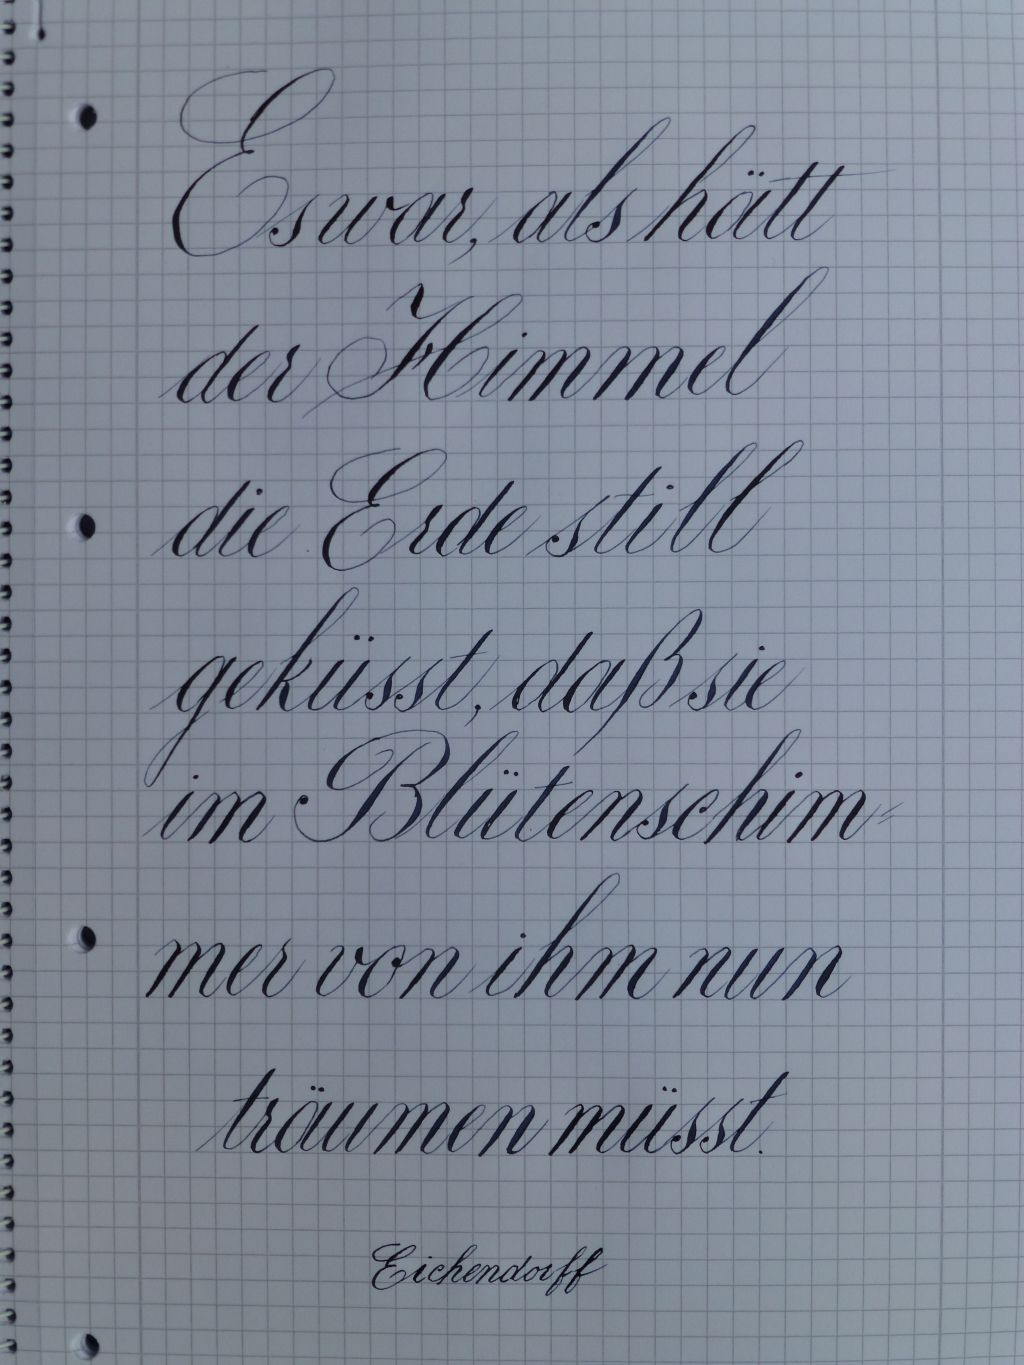 Es war, als hätt
der Himmel
die Erde still
geküsst, daß sie
im Blütenschim=
mer von ihm nun
träumen müsst.
Eichendorff